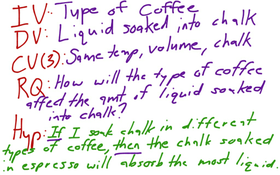 IV: Type of Coffee
DV: Liquid soaked into chalk
CV(3): Same temp, volume, chalk
RQ: How will the type of coffee
affect the amt of liquid soaked
into chalk?
Hyp: If I soak chalk in different
types of coffee, then the chalk soaked
in espresso will absorb the most liquid.